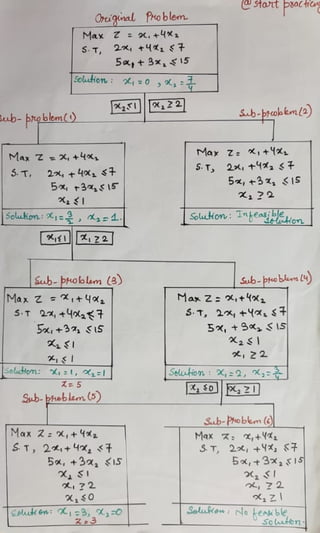 @start practicing
Original Problem
Max Z = x₁+4x₂
S.T, 2x₁+4x₂ ≤7
5x₁+3x₂ ≤15
Solution: x₁=0, x₂=7/4
x₂≤1 x₂≥2
Sub-problem(1)
Max Z=x₁+4x₂
S.T, 2x₁+4x₂ ≤7
5x₁+3x₂≤15
x₂≤1
Solution: x₁=3/2, x₂=1.
Sub-problem(2)
Max Z= x₁+4x₂
S.T, 2x₁+4x₂ ≤7
5x₁+3x₂ ≤15
x₂ ≥2
Solution: Infeasible
solution
x₁≤1 x₁≥2
Sub-problem (3)
Max Z=x₁+4x₂
S.T 2x₁+4x₂≤7
5x₁+3x₂ ≤15
x₂≤1
x₁≤1
Solution: x₁=1, x₂=1
Z=5
Sub-problem(4)
Max Z=x₁+4x₂
S.T, 2x₁+4x₂ ≤7
5x₁+3x₂ ≤15
x₂ ≤1
x₁ ≥2
Solution: x₁=2, x₂=3/4
x₂≤0 x₂≥1
Sub-problem(5)
Max Z=x₁+4x₂
S.T, 2x₁+4x₂ ≤7
5x₁+3x₂ ≤15
x₂≤1
x₁≥2
x₂≤0
Solution: x₁=3, x₂=0
Z=3
Sub-Problem(6)
Max Z= x₁+4x₂
S.T, 2x₁+4x₂ ≤7
5x₁+3x₂ ≤15
x₂≤1
x₁≥2
x₂≥1
Solution: No feasible
solution.